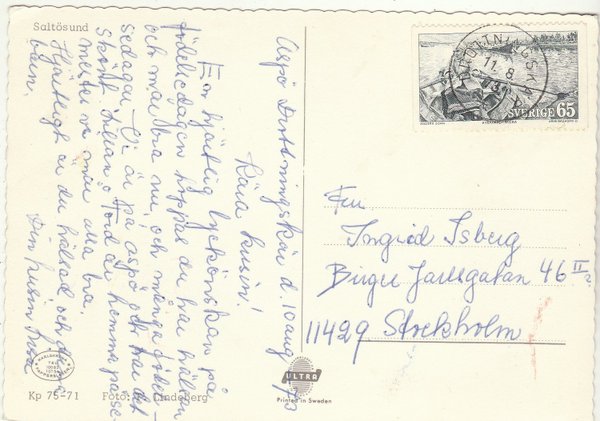 Saltösund
Aspö Drottningskär d. 10 aug /73
Kära kusin!
En hjärtlig lyckönskan på
födelsedagen hoppas du har hälsan
och mår bra nu, och många födel-
sedagar. Vi är på aspö och har det
skönt. Lilian o Tord är hemma passe-
mester vi mår alla bra.
Hjärtligt är du hälsad och dina
barn.
Din kusin
Fru
Ingrid Isberg
Birger Jarlsgatan 46 II
11429 Stockholm
DROTTNINGSKÄR
11.8
73
SVERIGE 65
ULTRA
Printed in Sweden
Kp 75-71 Foto: Lindeberg